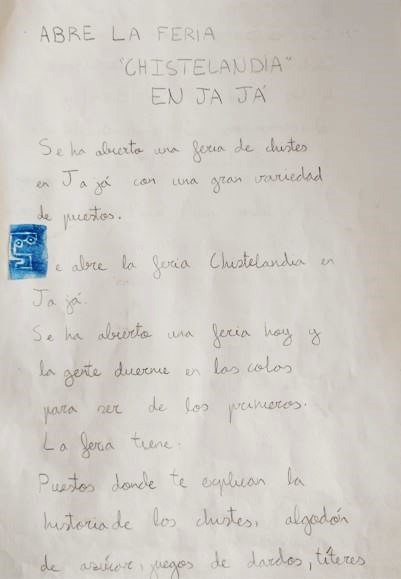 ABRE LA FERIA
"CHISTELANDIA"
EN JA JÁ
Se ha abierto una feria de chistes
en Ja já con una gran variedad
de puestos.
Se abre la feria Chistelandia en
Ja já.
Se ha abierto una feria hoy y
la gente duerme en las colas
para ser de los primeros.
La feria tiene:
Puestos donde te explican la
historia de los chistes, algodón
de azúcar, juegos de dardos, títeres